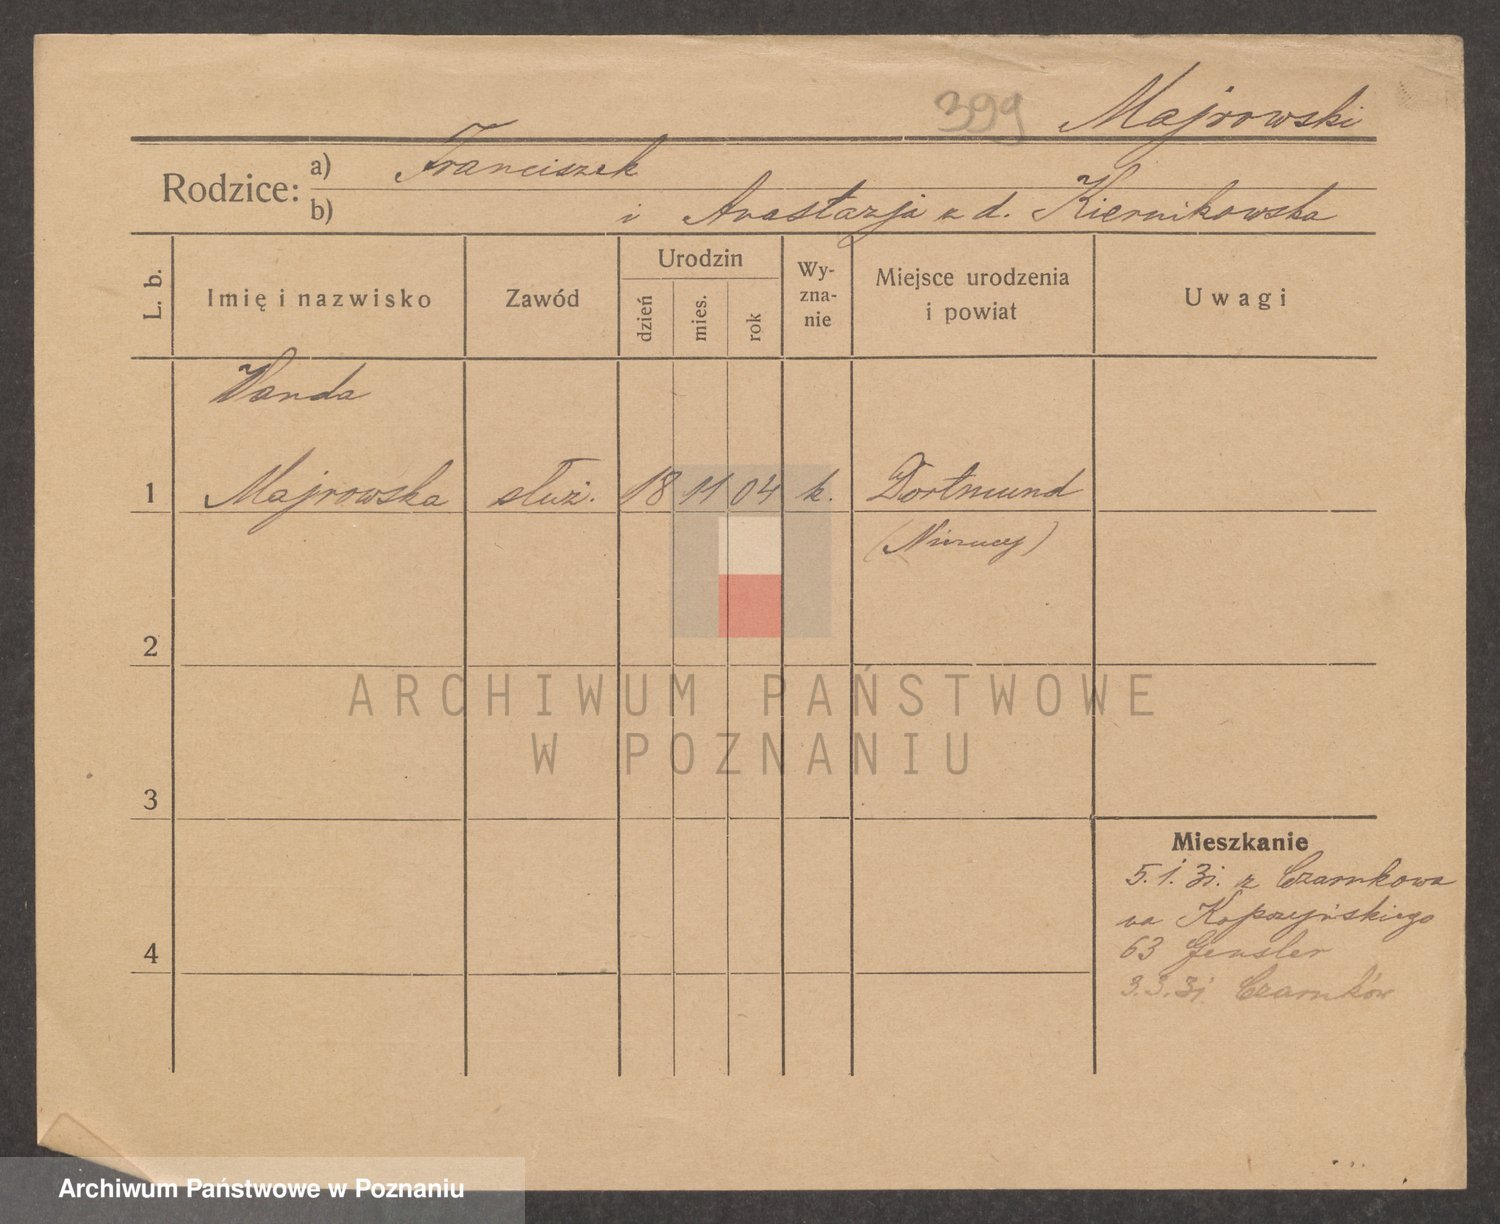 399 Majrowski
Rodzice: a) Franciszek
b) i Anastazja z d. Kiernikowska
L. b.
Imię i nazwisko
Zawód
Urodzin
dzień
mies.
rok
Wy-
zna-
nie
Miejsce urodzenia
i powiat
Uwagi
Wanda
1 Majrowska służ. 18 11 04 k. Dortmund
(Niemcy)
2
3
4
Mieszkanie
5.1.31. z Czarnkowa
na
63 Gensler
3.3.31 Czarnków
ARCHIWUM PAŃSTWOWE
W POZNANIU
Archiwum Państwowe w Poznaniu